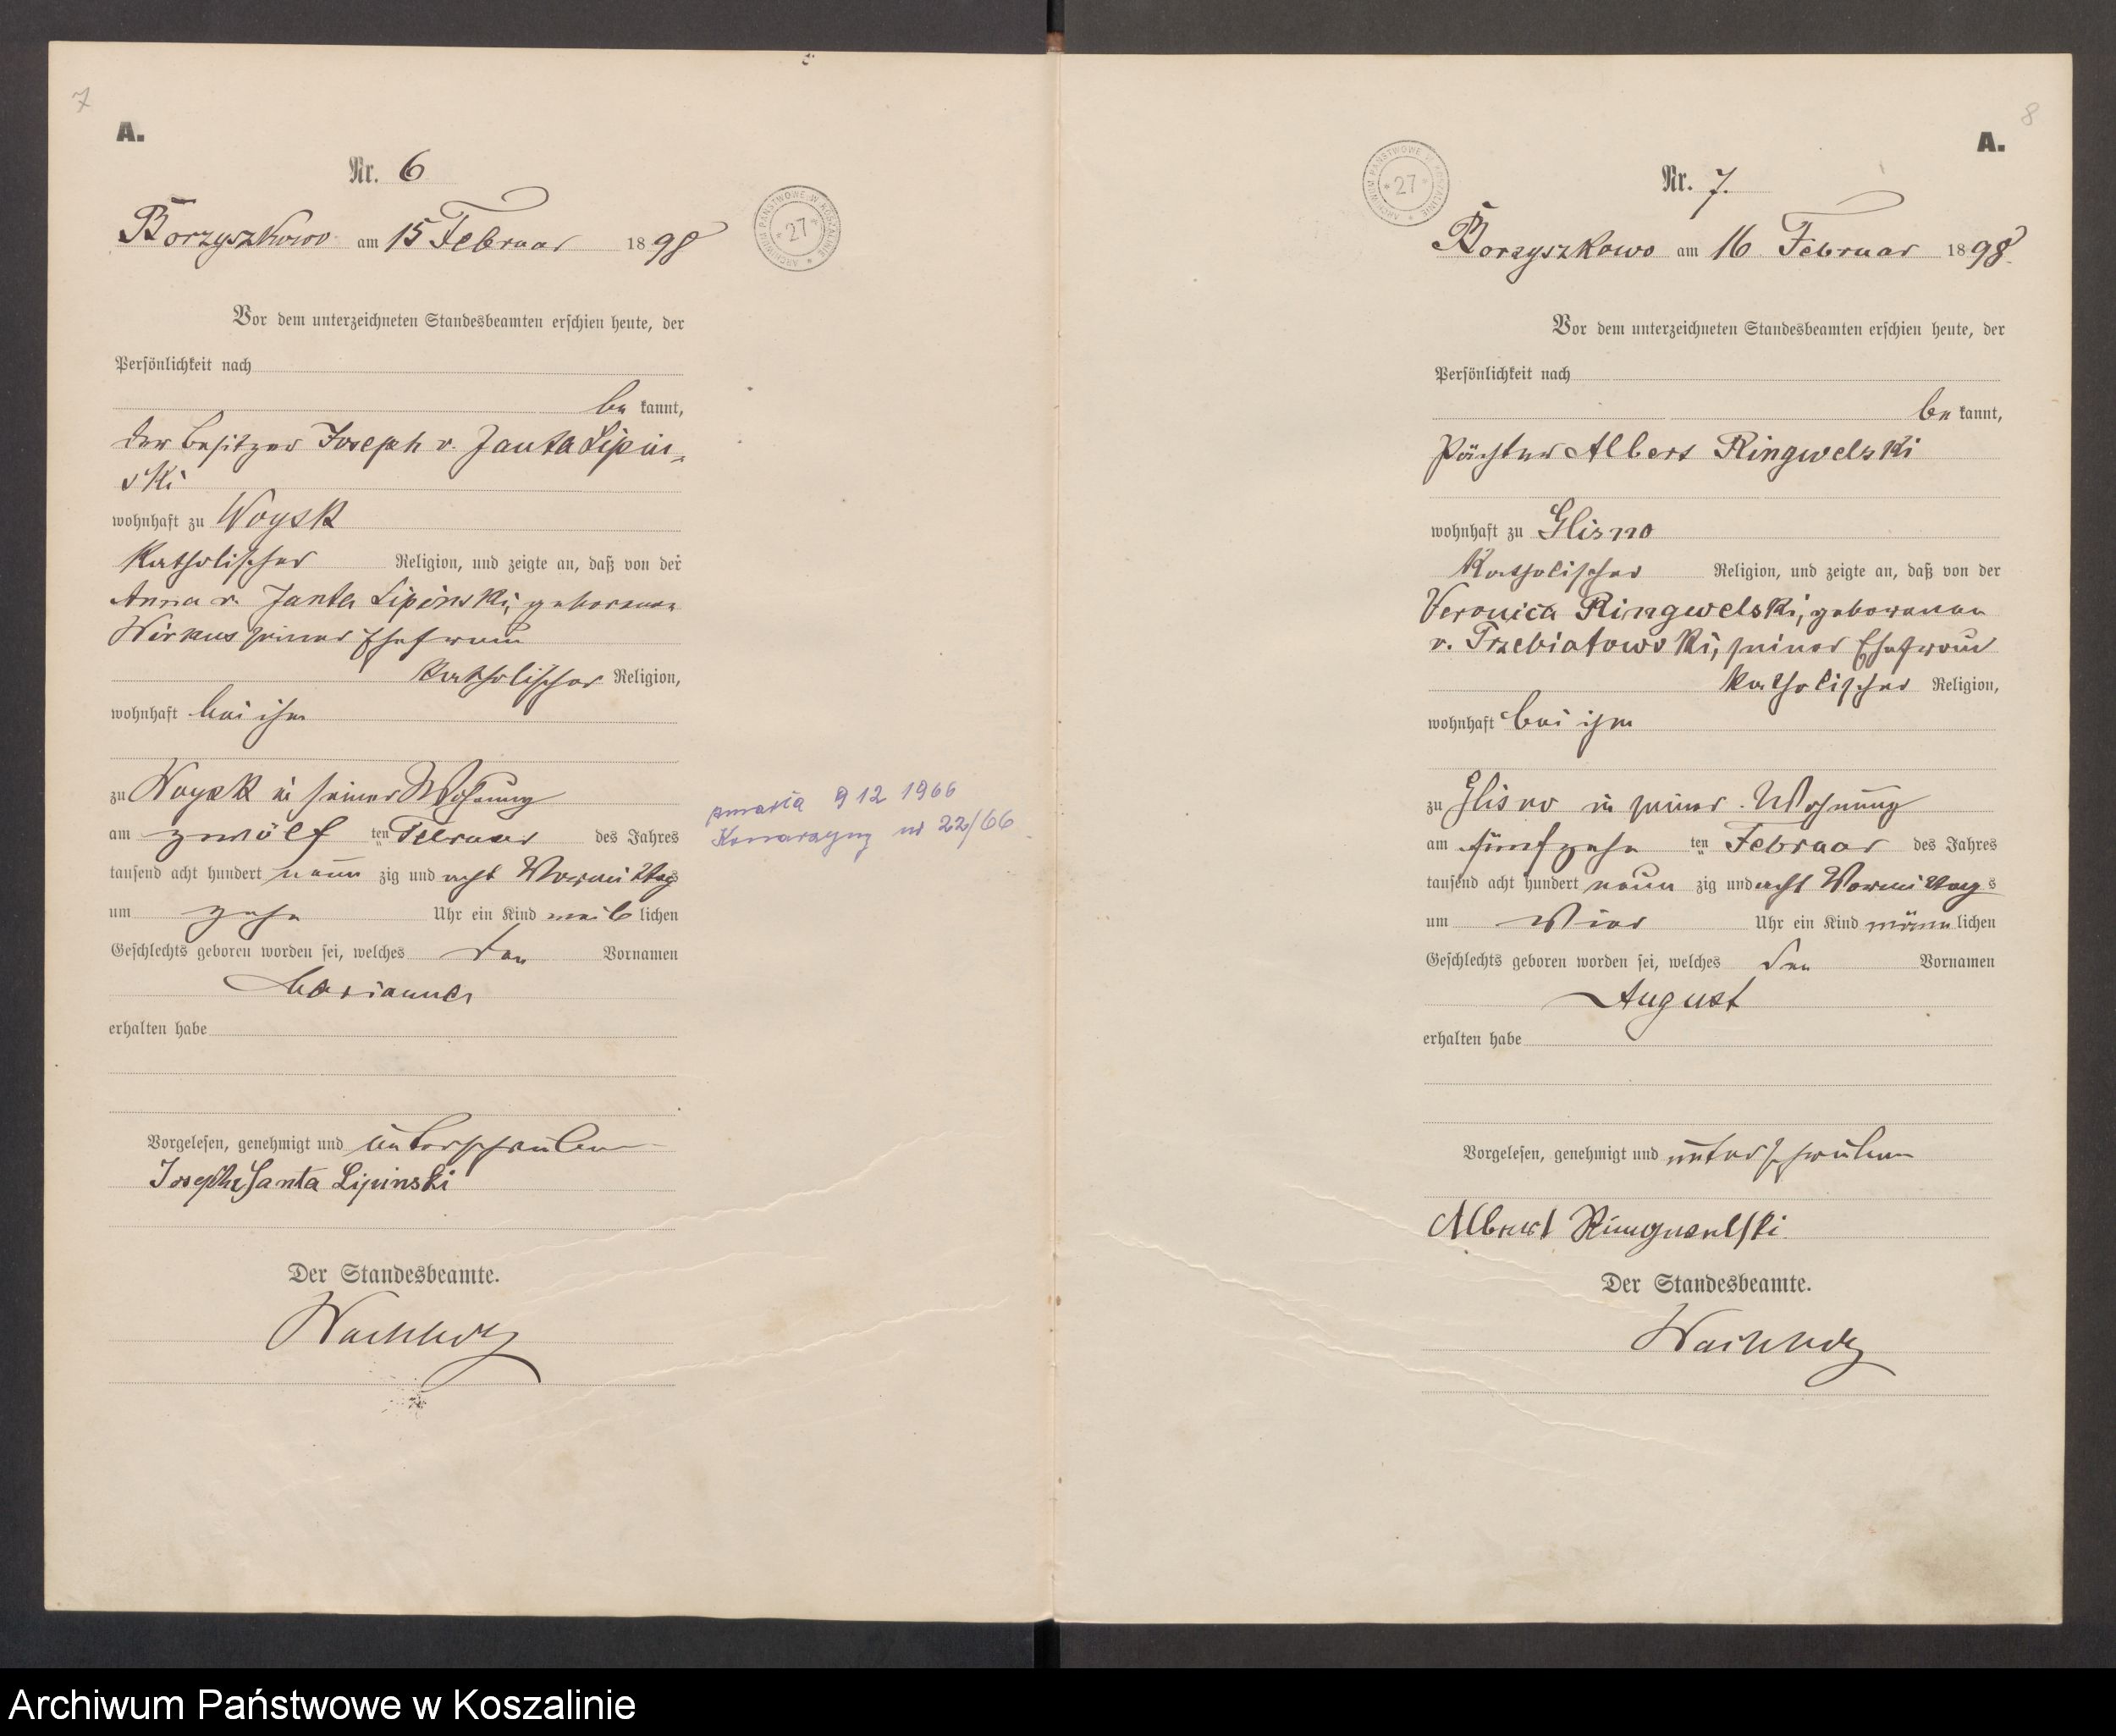 7
A.
Nr. 6
Borzyszkowo am 15 Februar 1898
ARCHIWUM PAŃSTWOWE W KOSZALINIE * 27 *
Vor dem unterzeichneten Standesbeamten erschien heute, der
Persönlichkeit nach
be kannt,
der Besitzer Joseph v. Janta Lipin-
ski
wohnhaft zu Woysk
katholischer Religion, und zeigte an, daß von der
Anna v. Janta Lipinski, geborenen
Wirkus seiner Ehefrau
katholischer Religion,
wohnhaft bei ihm
zu Woysk in seiner Wohnung
am zwölf ten Februar des Jahres
tausend acht hundert neun zig und acht Vormittags
um zehn Uhr ein Kind weib lichen
Geschlechts geboren worden sei, welches den Vornamen
Marianna
erhalten habe
Vorgelesen, genehmigt und unterschrieben
Joseph Janta Lipinski
Der Standesbeamte.
Wachholz
zmarła 9 12 1966
nr 22/66
8
A.
ARCHIWUM PAŃSTWOWE W KOSZALINIE * 27 *
Nr. 7.
Borzyszkowo am 16 Februar 1898.
Vor dem unterzeichneten Standesbeamten erschien heute, der
Persönlichkeit nach
be kannt,
Pächter Albert Ringwelski
wohnhaft zu Glisno
katholischer Religion, und zeigte an, daß von der
Veronica Ringwelski, geborenen
v. Trzebiatowski, seiner Ehefrau
katholischer Religion,
wohnhaft bei ihm
zu Glisno in seiner Wohnung
am fünfzehn ten Februar des Jahres
tausend acht hundert neun zig und acht Vormittags
um vier Uhr ein Kind männ lichen
Geschlechts geboren worden sei, welches den Vornamen
August
erhalten habe
Vorgelesen, genehmigt und unterschrieben
Albert Ringwelski
Der Standesbeamte.
Wachholz
Archiwum Państwowe w Koszalinie